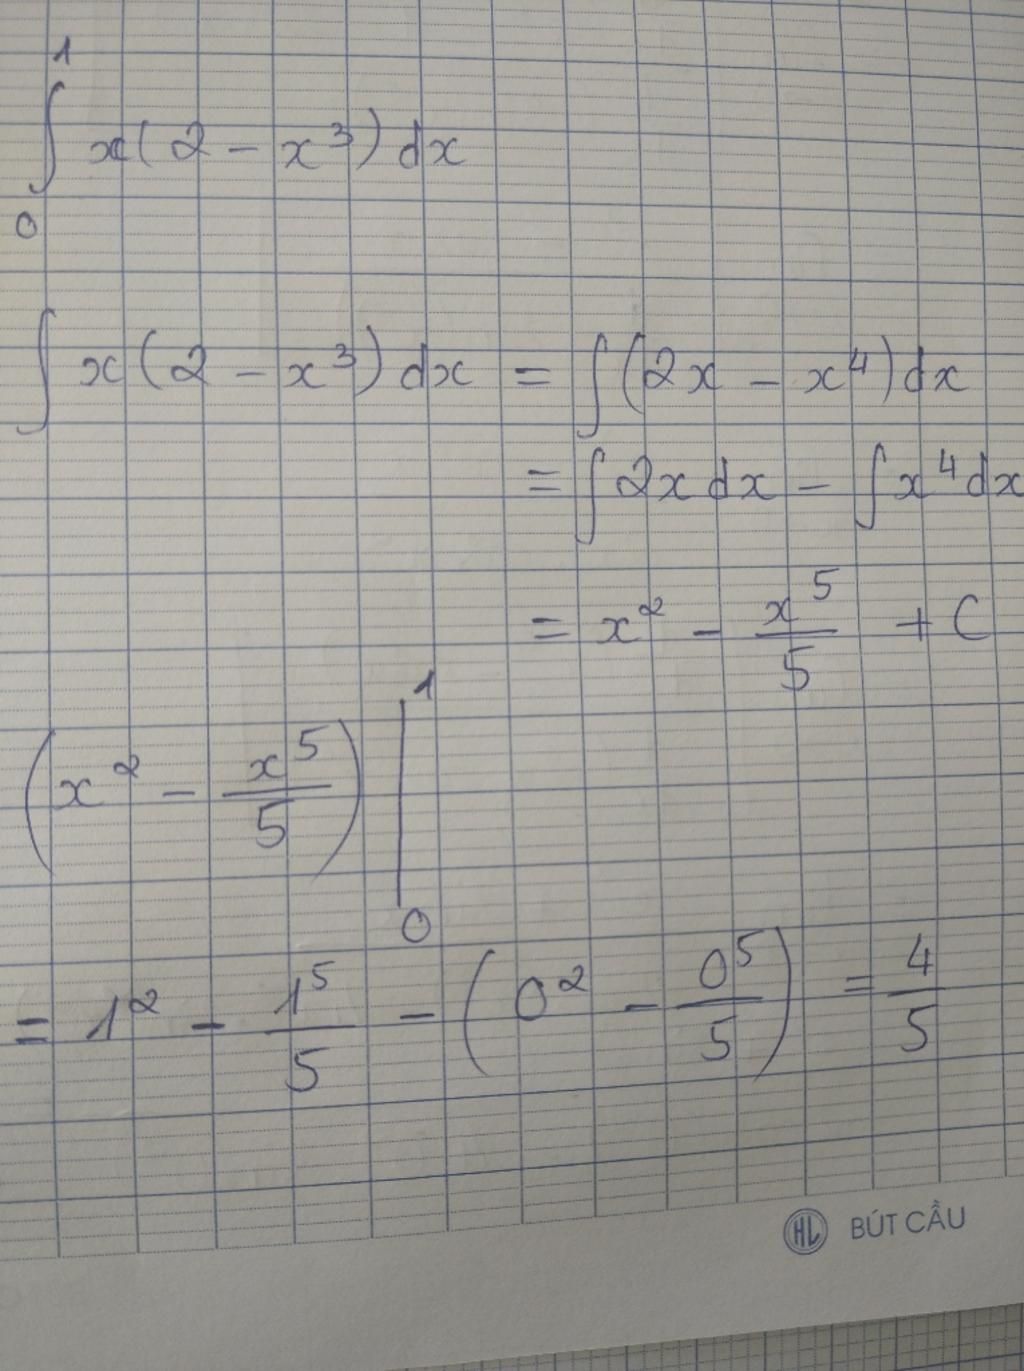 ∫₀¹ x(2 - x³) dx
∫ x(2 - x³) dx = ∫(2x - x⁴) dx
= ∫ 2x dx - ∫ x⁴ dx
= x² - x⁵/5 + C
(x² - x⁵/5) |₀¹
= 1² - 1⁵/5 - (0² - 0⁵/5) = 4/5
HL BÚT CẦU